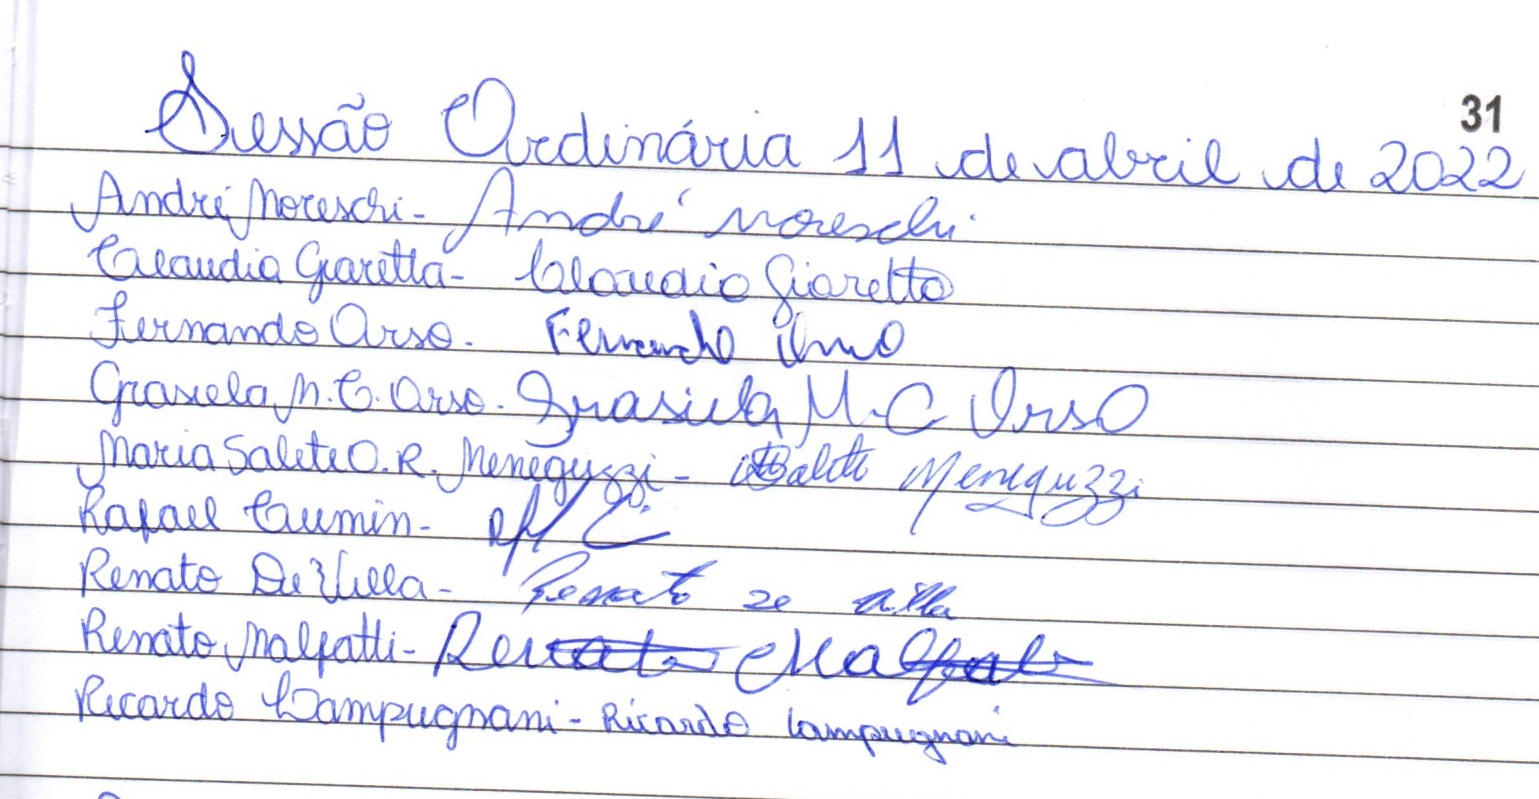 31
Sessão Ordinária 11 de abril de 2022
André Moreschi - André Moreschi
Claudia Giaretta - Claudio Giaretta
Fernando Orso. Fernando
Grasiela M. C. Orso. Grasiela M. C Orso
Maria Salete O. R. Meneguzzi - Salete Meneguzzi
Rafael Cumin -
Renato De Villa - Renato
Renato Malfatti - Renato Malfatti
Ricardo Lampugnani - Ricardo Lampugnani